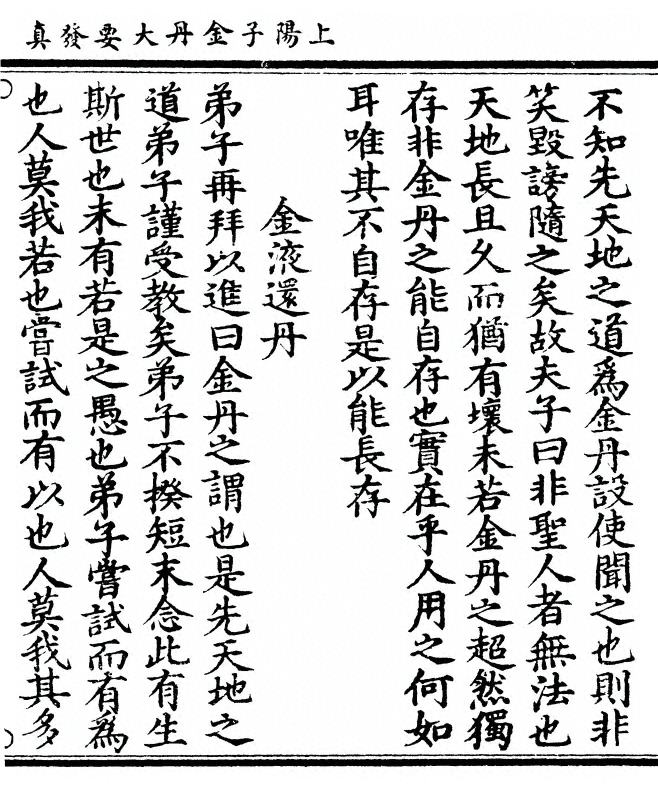 上陽子金丹大要發真
不知先天地之道爲金丹設使聞之也則非
笑毀謗隨之矣故夫子曰非聖人者無法也
天地長且久而猶有壞未若金丹之超然獨
存非金丹之能自存也實在乎人用之何如
耳唯其不自存是以能長存
金液還丹
弟子再拜以進曰金丹之謂也是先天地之
道弟子謹受教矣弟子不揆短末念此有生
斯世也未有若是之愚也弟子嘗試而有爲
也人莫我若也嘗試而有以也人莫我其多